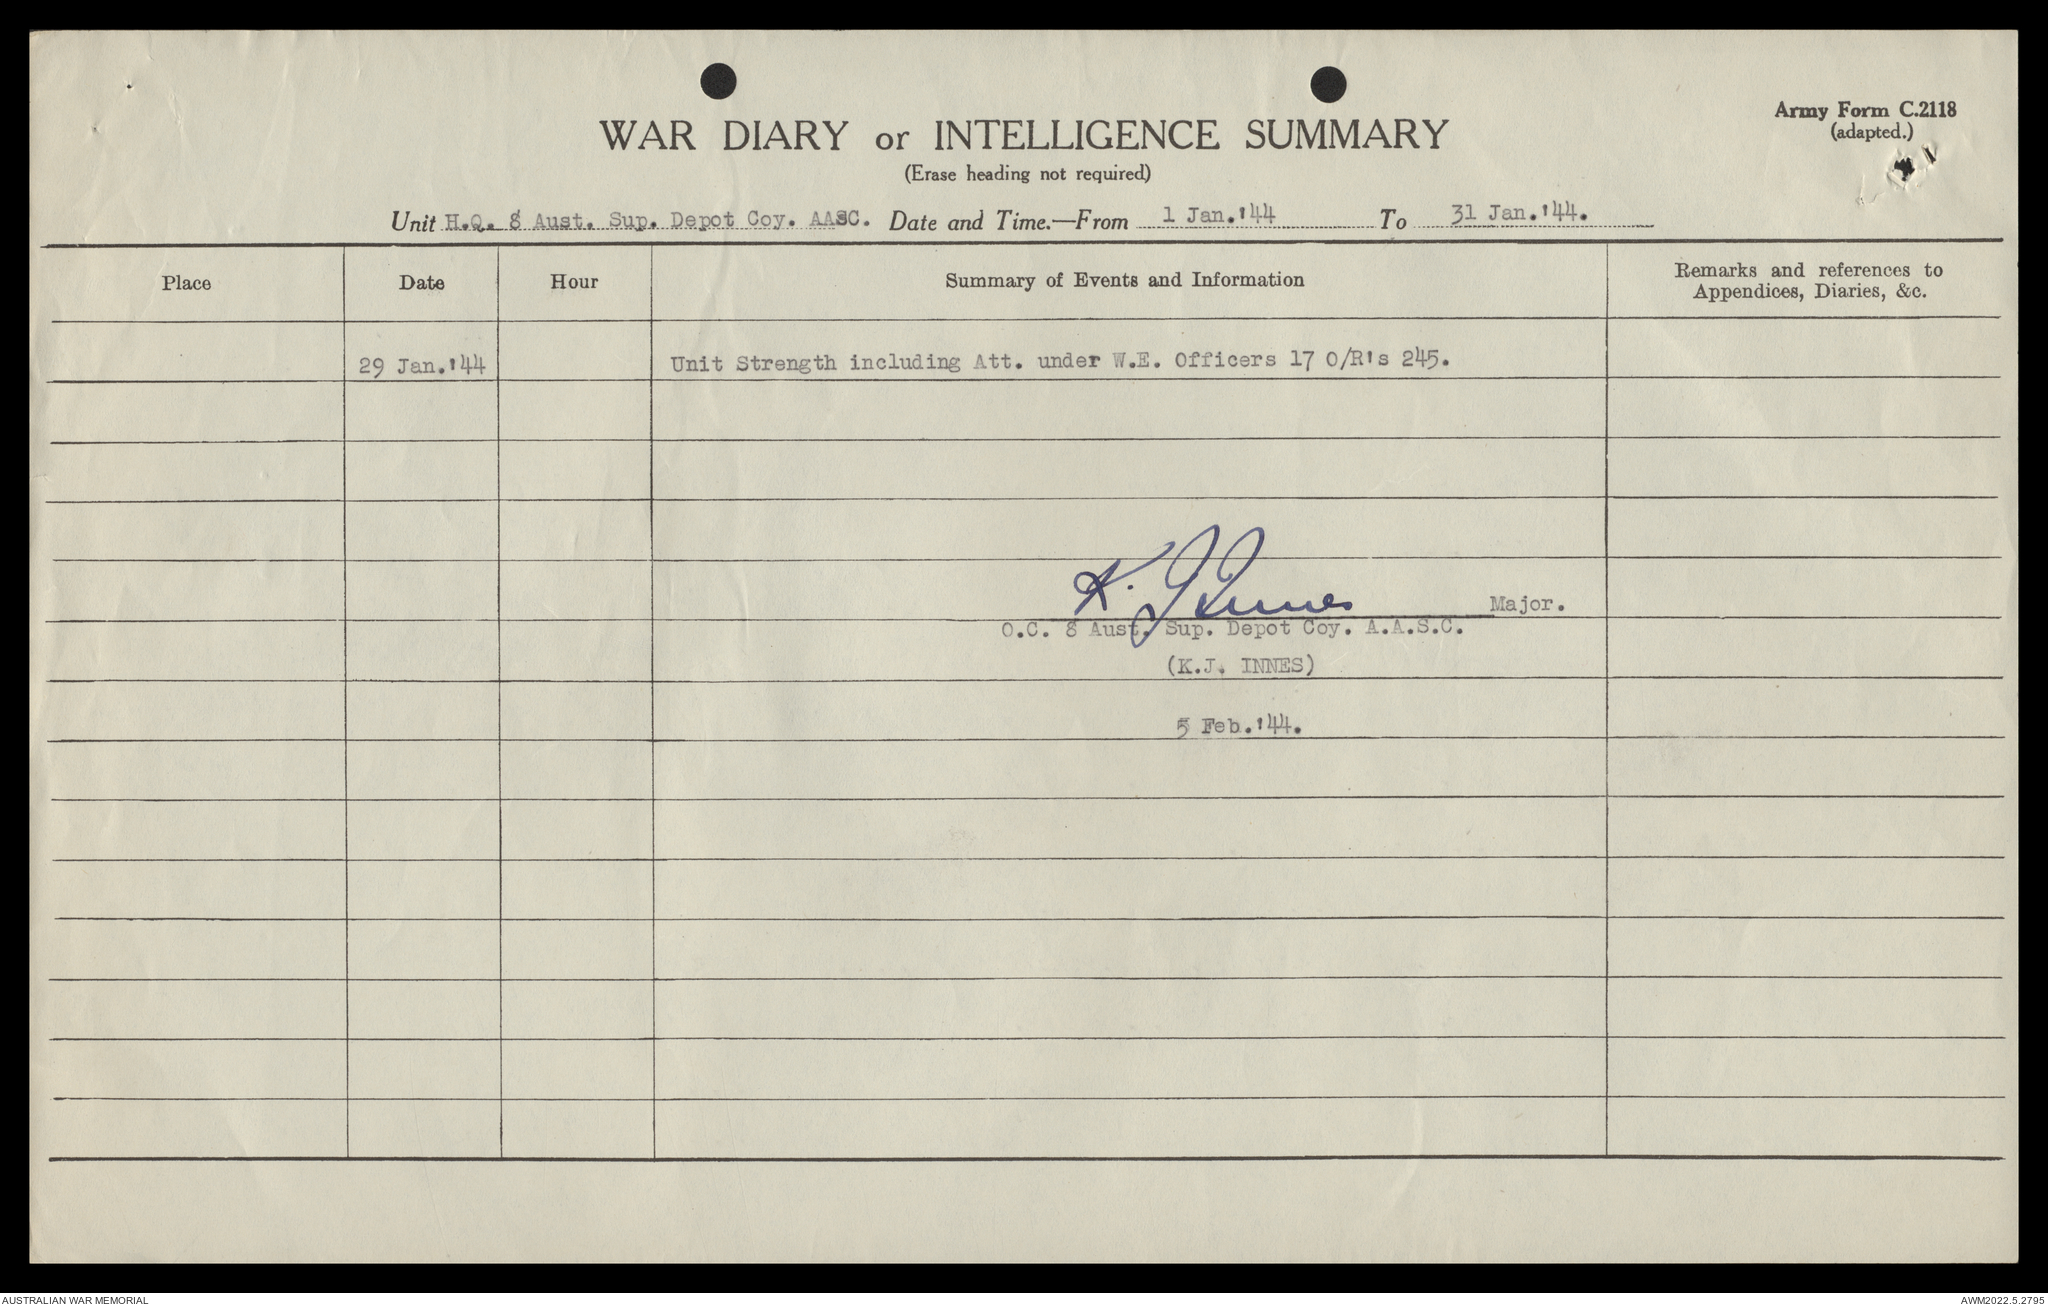 Army Form C.2118
(adapted.)
WAR DIARY or INTELLIGENCE SUMMARY
(Erase heading not required)
Unit H.Q. 8 Aust. Sup. Depot Coy. AASC. Date and Time.—From 1 Jan.'44 To 31 Jan.'44.
Place Date Hour Summary of Events and Information Remarks and references to
Appendices, Diaries, &c.
29 Jan.'44 Unit Strength including Att. under W.E. Officers 17 O/R's 245.
K. J Innes Major.
O.C. 8 Aust. Sup. Depot Coy. A.A.S.C.
(K.J. INNES)
5 Feb.'44.
AUSTRALIAN WAR MEMORIAL AWM2022.5.2795